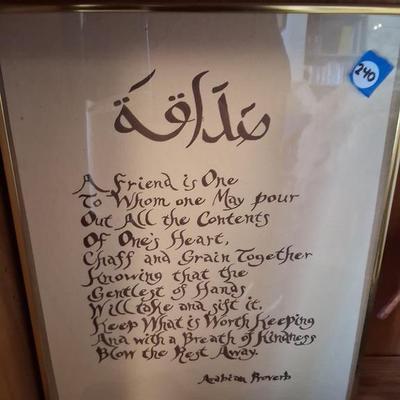 صَدَاقَة
240
A Friend is One
To Whom one May pour
Out All the Contents
Of One's Heart,
Chaff and Grain Together
Knowing that the
Gentlest of Hands
Will take and sift it,
Keep What is Worth Keeping
And with a Breath of Kindness
Blow the Rest Away.
Arabian Proverb